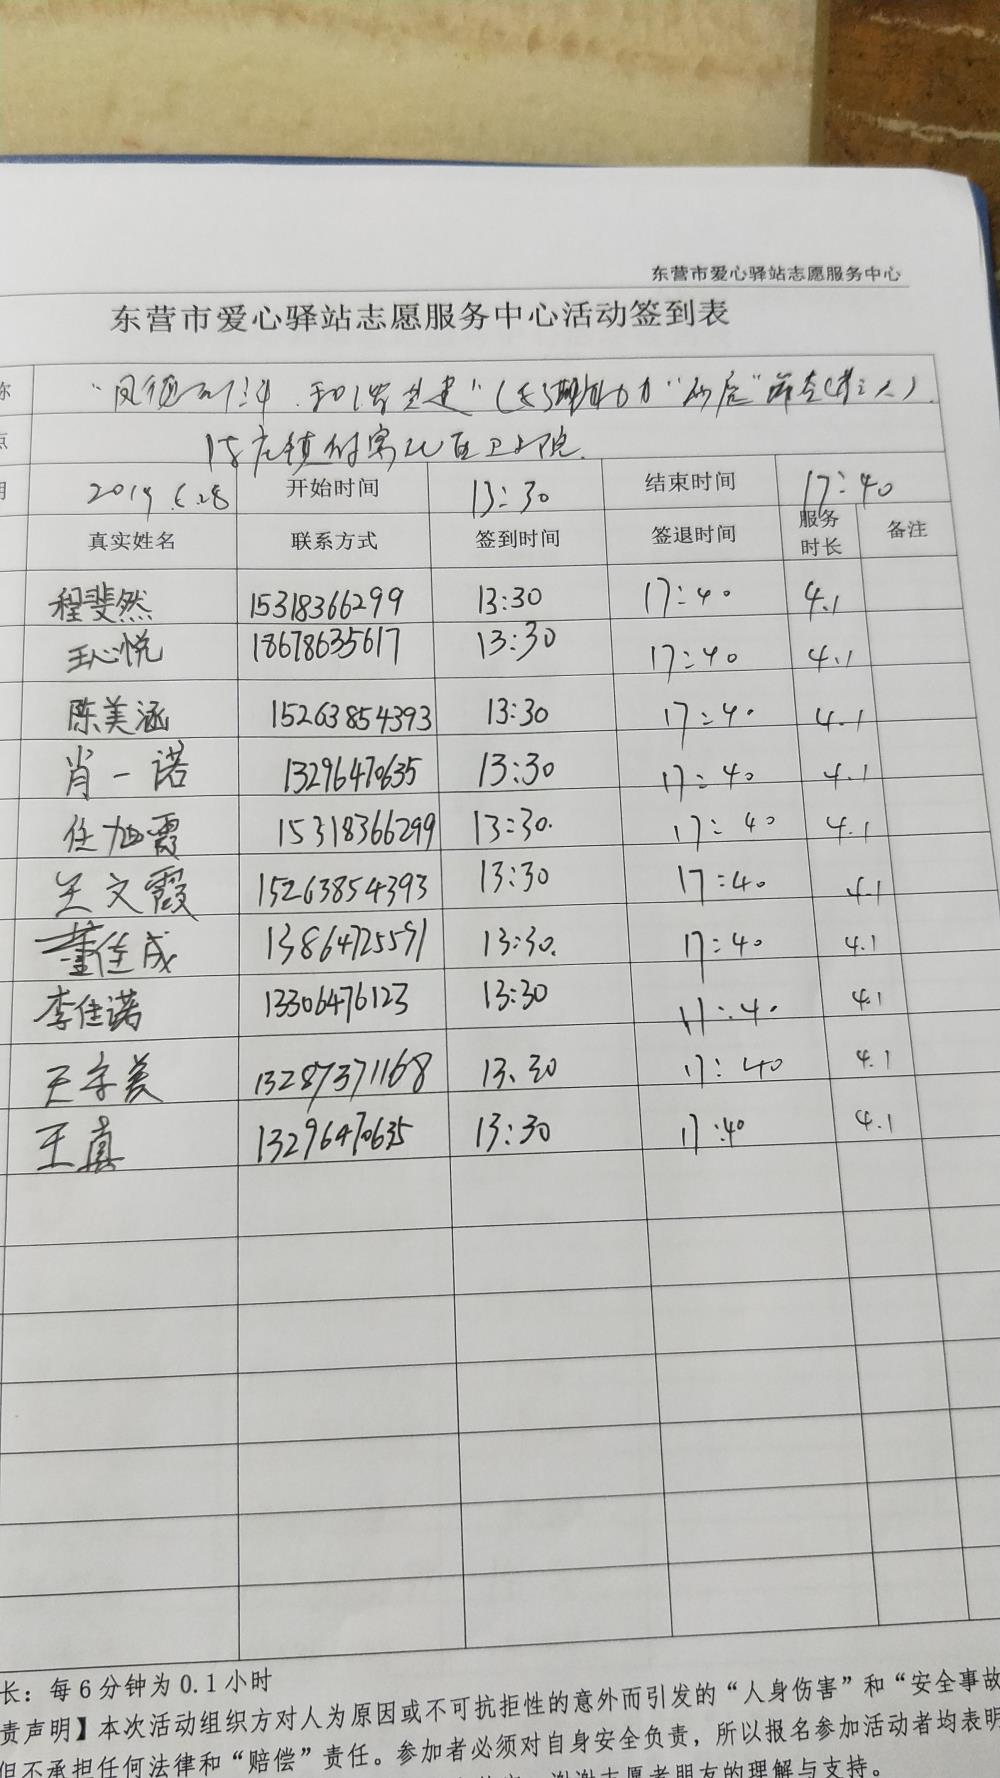 东营市爱心驿站志愿服务中心
东营市爱心驿站志愿服务中心活动签到表
称
点
期 2019.6.28 开始时间 13:30 结束时间 17:40
真实姓名 联系方式 签到时间 签退时间 服务时长 备注
程斐然 15318366299 13:30 17:40 4.1
王心悦 18678635617 13:30 17:40 4.1
陈美涵 15263854393 13:30 17:40 4.1
肖一诺 13296470635 13:30 17:40 4.1
任旭霞 15318366299 13:30. 17:40 4.1
王文霞 15263854393 13:30 17:40 4.1
董佳成 13864725591 13:30. 17:40 4.1
李佳诺 13306476123 13:30 17:40 4.1
13287371168 13:30 17:40 4.1
王真 13296470635 13:30 17:40 4.1
长：每6分钟为0.1小时
责声明】本次活动组织方对人为原因或不可抗拒性的意外而引发的“人身伤害”和“安全事故
但不承担任何法律和“赔偿”责任。参加者必须对自身安全负责，所以报名参加活动者均表明
谢谢志愿者朋友的理解与支持。